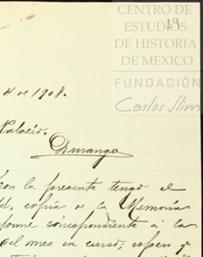 CENTRO DE
ESTUDIOS
DE HISTORIA
DE MEXICO
FUNDACIÓN
Carlos Slim
de 1908.
Palacio.
Durango
con la presente tengo el
copia de la Memoria
forme correspondiente á la
el mes en curso;